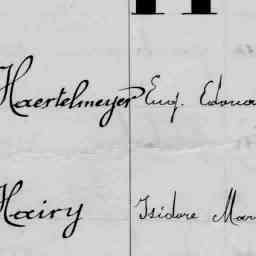 Haertelmeyer Eug. Edoua
Hairy Isidore Mar